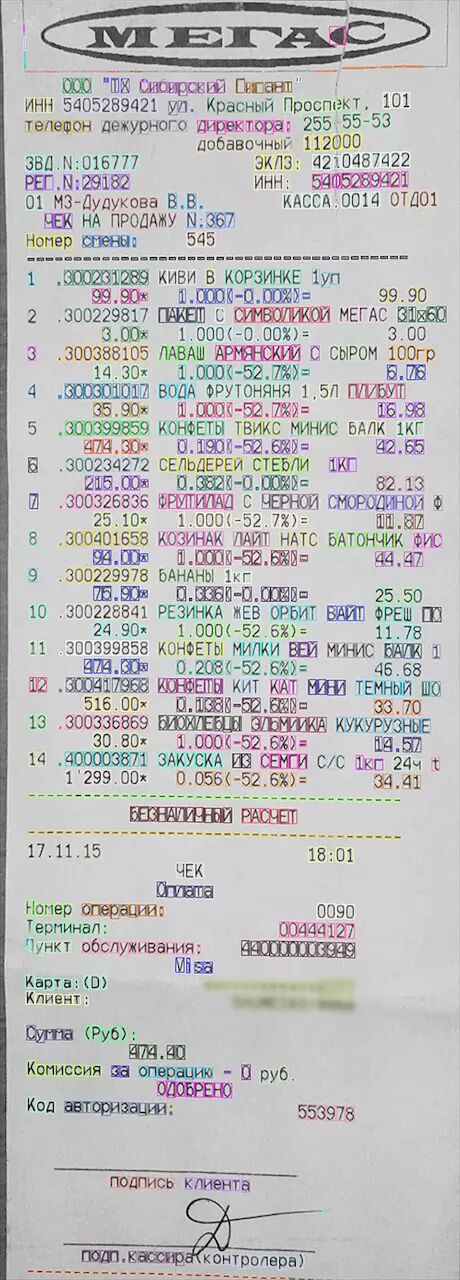 МЕГАС
ООО "ТХ Сибирский Гигант"
ИНН 5405289421 ул. Красный Проспект, 101
телефон дежурного директора: 255-55-53
добавочный 112000
ЗВД.N:016777 ЭКЛЗ: 4210487422
РЕГ.N:29182 ИНН: 5405289421
01 МЗ-Дудукова В.В. КАССА:0014 ОТД01
ЧЕК НА ПРОДАЖУ N:367
Номер смены: 545
1 .300231289 КИВИ В КОРЗИНКЕ 1уп
99.90* 1.000(-0.00%)= 99.90
2 .300229817 ПАКЕТ С СИМВОЛИКОЙ МЕГАС 31x60
3.00* 1.000(-0.00%)= 3.00
3 .300388105 ЛАВАШ АРМЯНСКИЙ С СЫРОМ 100гр
14.30* 1.000(-52.7%)= 6.76
4 .300301017 ВОДА ФРУТОНЯНЯ 1,5Л ПЛ/БУТ
35.90* 1.000(-52.7%)= 16.98
5 .300399859 КОНФЕТЫ ТВИКС МИНИС БАЛК 1КГ
474.30* 0.190(-52.6%)= 42.65
6 .300234272 СЕЛЬДЕРЕЙ СТЕБЛИ 1КГ
215.00* 0.382(-0.00%)= 82.13
7 .300326836 ФРУТИЛАД С ЧЕРНОЙ СМОРОДИНОЙ Ф
25.10* 1.000(-52.7%)= 11.87
8 .300401658 КОЗИНАК ЛАЙТ НАТС БАТОНЧИК ФИС
94.00* 1.000(-52.6%)= 44.47
9 .300229978 БАНАНЫ 1кг
75.90* 0.336(-0.00%)= 25.50
10 .300228841 РЕЗИНКА ЖЕВ ОРБИТ ВАЙТ ФРЕШ ПО
24.90* 1.000(-52.6%)= 11.78
11 .300399858 КОНФЕТЫ МИЛКИ ВЕЙ МИНИС БАЛК 1
474.30* 0.208(-52.6%)= 46.68
12 .300417968 КОНФЕТЫ КИТ КАТ МИНИ ТЕМНЫЙ ШО
516.00* 0.138(-52.6%)= 33.70
13 .300336869 БИОХЛЕБЦЫ ЭЛЬМИИКА КУКУРУЗНЫЕ
30.80* 1.000(-52.6%)= 14.57
14 .400003871 ЗАКУСКА ИЗ СЕМГИ С/С 1кг 24ч t
1'299.00* 0.056(-52.6%)= 34.41
БЕЗНАЛИЧНЫЙ РАСЧЕТ
17.11.15 18:01
ЧЕК
Оплата
Номер операции: 0090
Терминал: 00444127
Пункт обслуживания: 440000003949
Visa
Карта:(D)
Клиент:
Сумма (Руб):
474.40
Комиссия за операцию - 0 руб.
ОДОБРЕНО
Код авторизации: 553978
подпись клиента
подп.кассира(контролера)